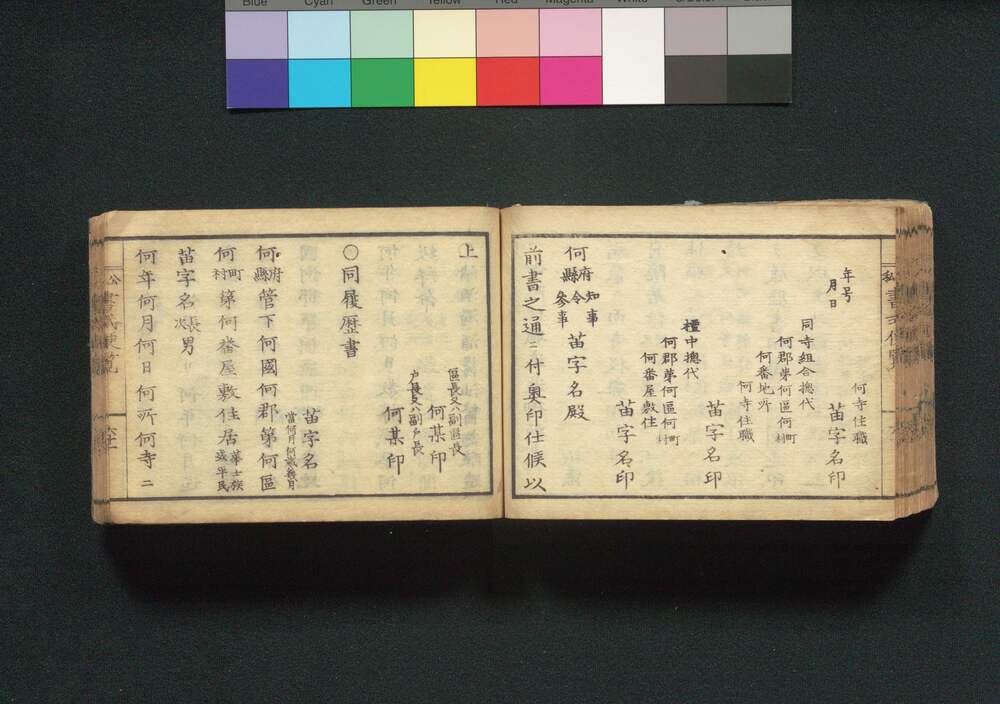 Blue Cyan Green Yellow Red Magenta White
年号
月日
何寺住職
苗字名印
同寺組合摠代
何郡苐何區何町村
何番地所
何寺住職
苗字名印
檀中摠代
何郡苐何區何町村
何番屋敷住
苗字名印
何府縣知事令參事
苗字名殿
前書之通ニ付奥印仕候以
上
區長又ハ副區長
何某印
戸長又ハ副戸長
何某印
〇同履歴書
苗字名
當何月何歳幾月
何府縣管下何國何郡第何區
何町村第何番屋敷住居華士族或平民
苗字名長次男
何年何月何日何所何寺ニ
公
書式便覧
六十